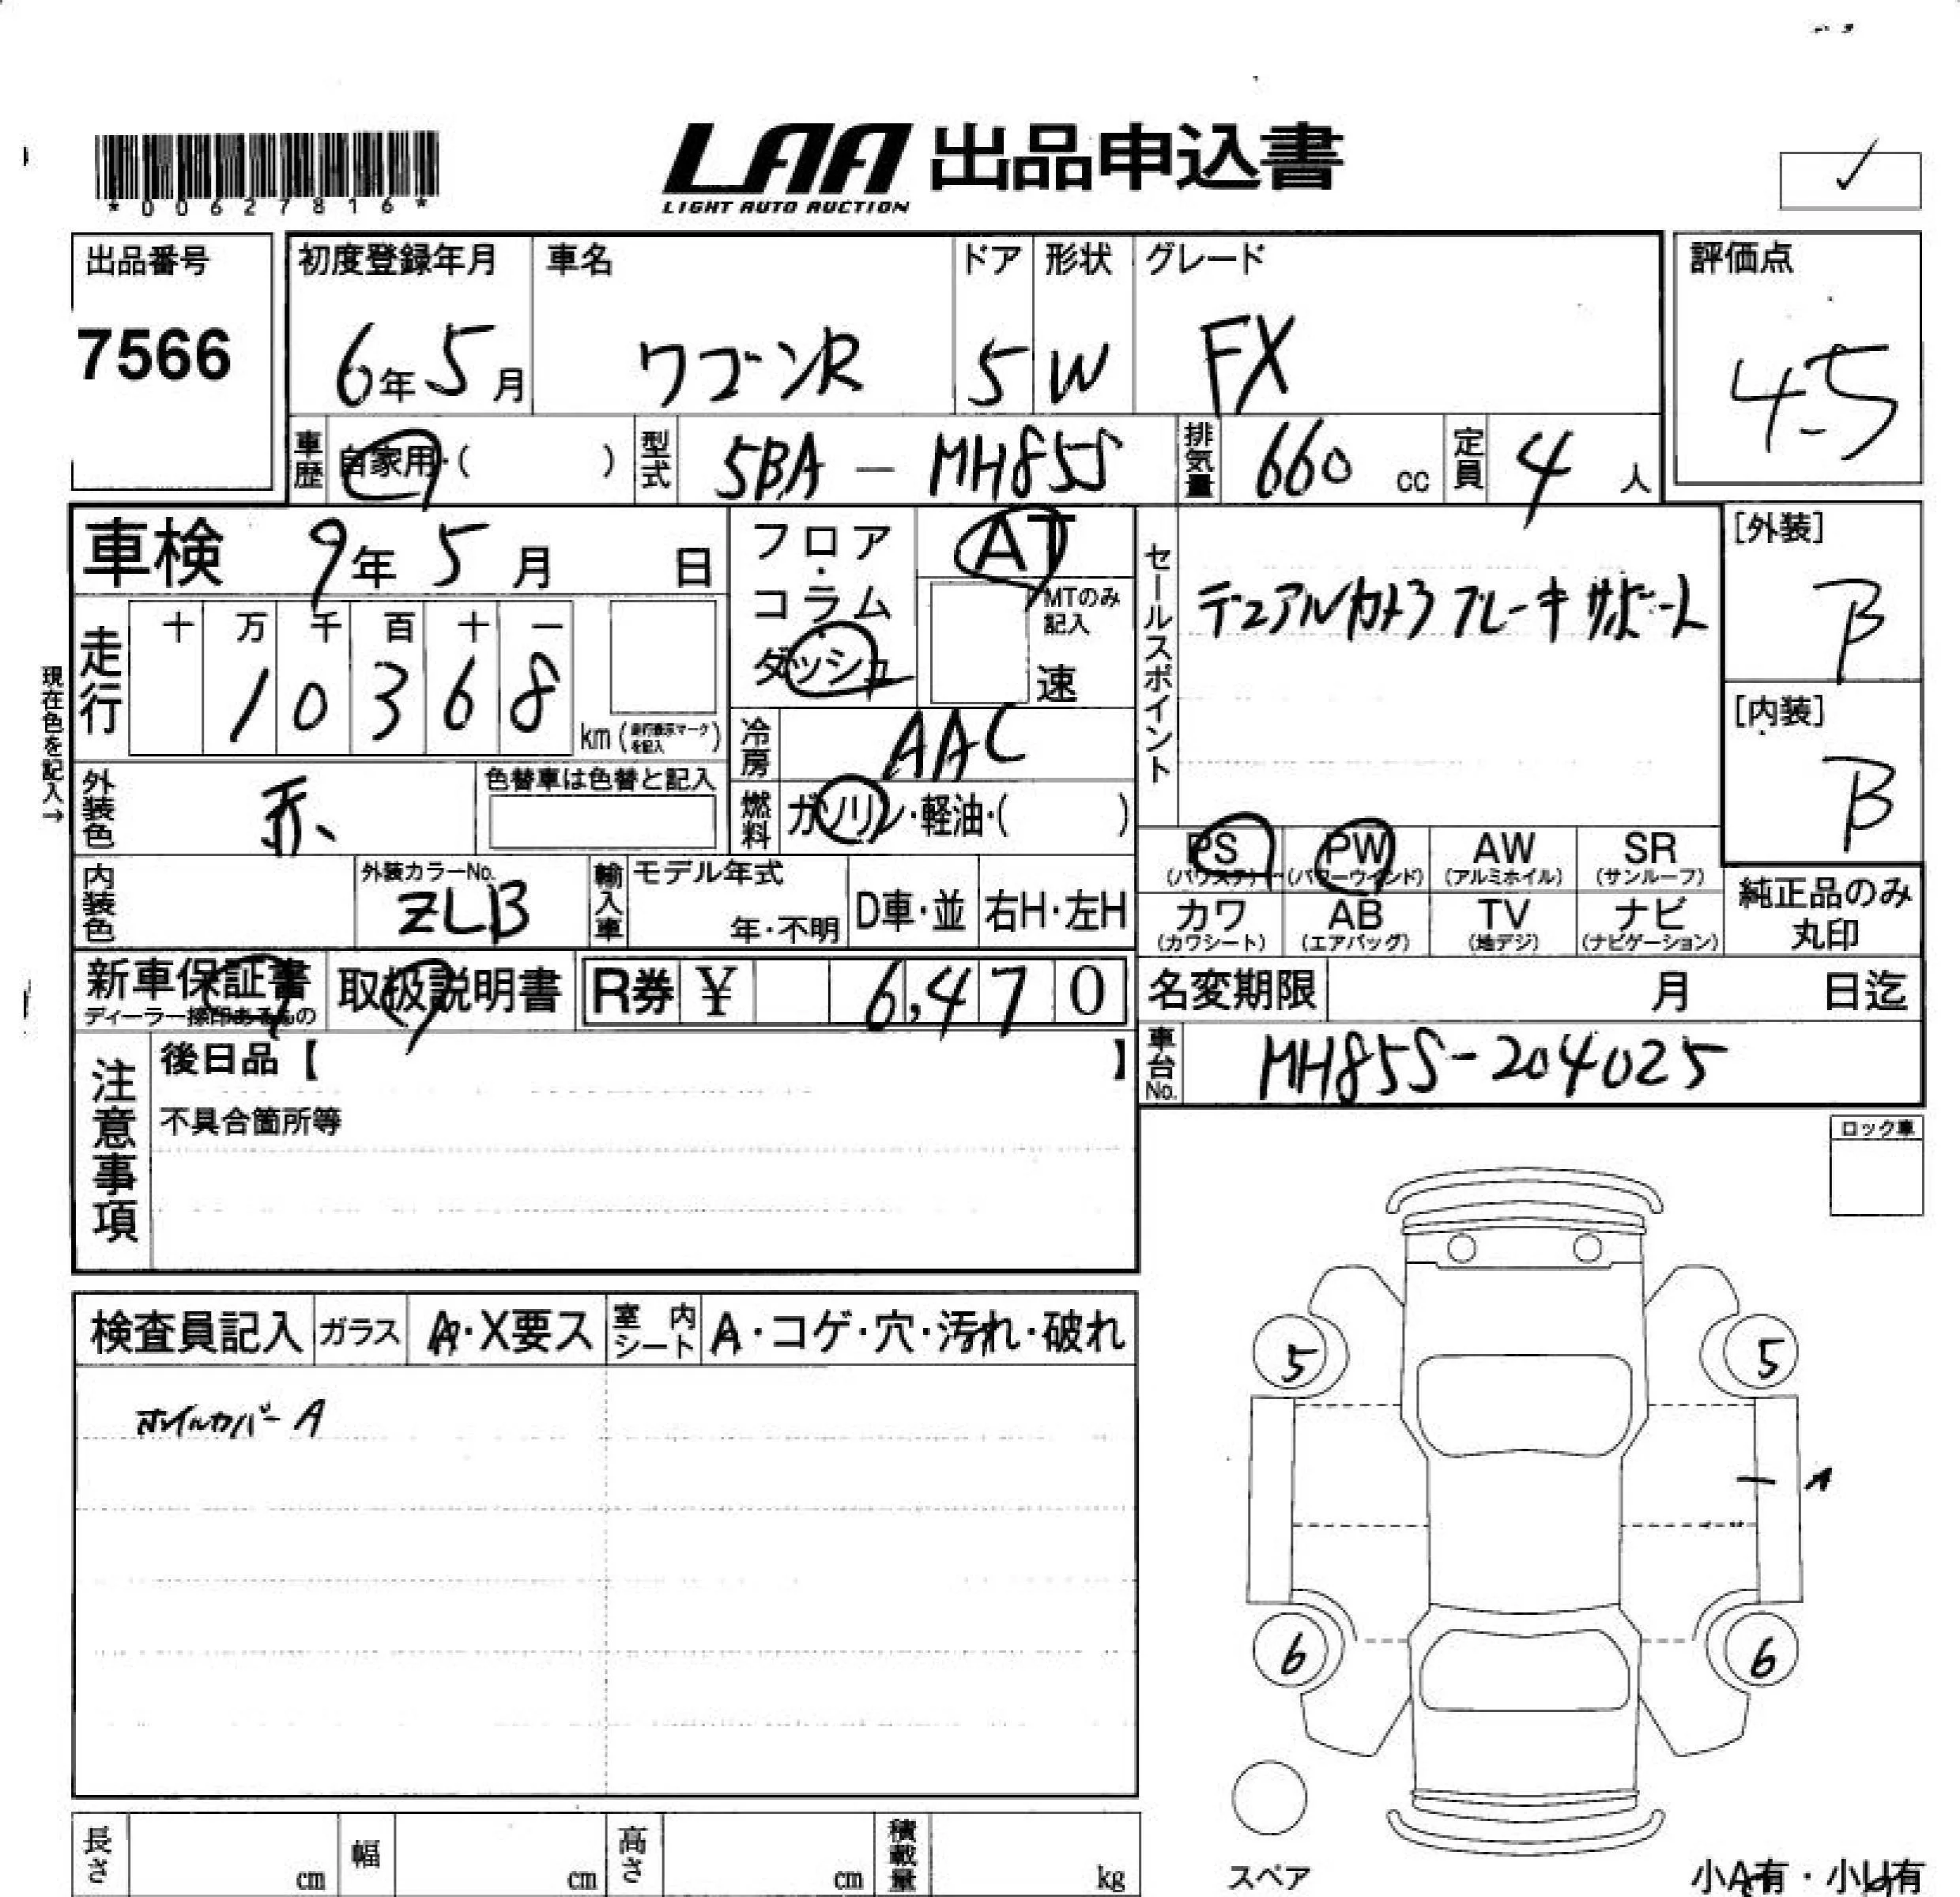 LAA 出品申込書
LIGHT AUTO AUCTION
*00627816*
出品番号
7566
初度登録年月 車名 ドア 形状 グレード
6年5月 ワゴンR 5 W FX
評価点
4.5
車歴 自家用・( ) 型式 5BA - MH85S 排気量 660 cc 定員 4 人
車検 9年5月 日
フロア・コラム・ダッシュ
AT
MTのみ記入
速
セールスポイント
デュアルカメラブレーキサポート
[外装]
B
[内装]
B
現在色を記入→
走行 十 万 千 百 十 一
1 0 3 6 8 km (走行表示マークを記入)
冷房 AAC
外装色 赤
色替車は色替と記入
燃料 ガソリン・軽油・( )
PS (パワステ) PW (パワーウインド) AW (アルミホイル) SR (サンルーフ)
カワ (カワシート) AB (エアバッグ) TV (地デジ) ナビ (ナビゲーション)
純正品のみ丸印
内装色 外装カラーNo. ZLB
輸入車 モデル年式 年・不明 D車・並 右H・左H
新車保証書 取扱説明書 R券 ¥ 6,470
ディーラー捺印あるもの
名変期限 月 日迄
車台No. MH85S-204025
注意事項
後日品【 】
不具合箇所等
ロック車
検査員記入 ガラス A・X要ス 室内シート A・コゲ・穴・汚れ・破れ
ホイルカバー A
5 5
A
6 6
スペア
長さ cm 幅 cm 高さ cm 積載量 kg
小A有・小U有